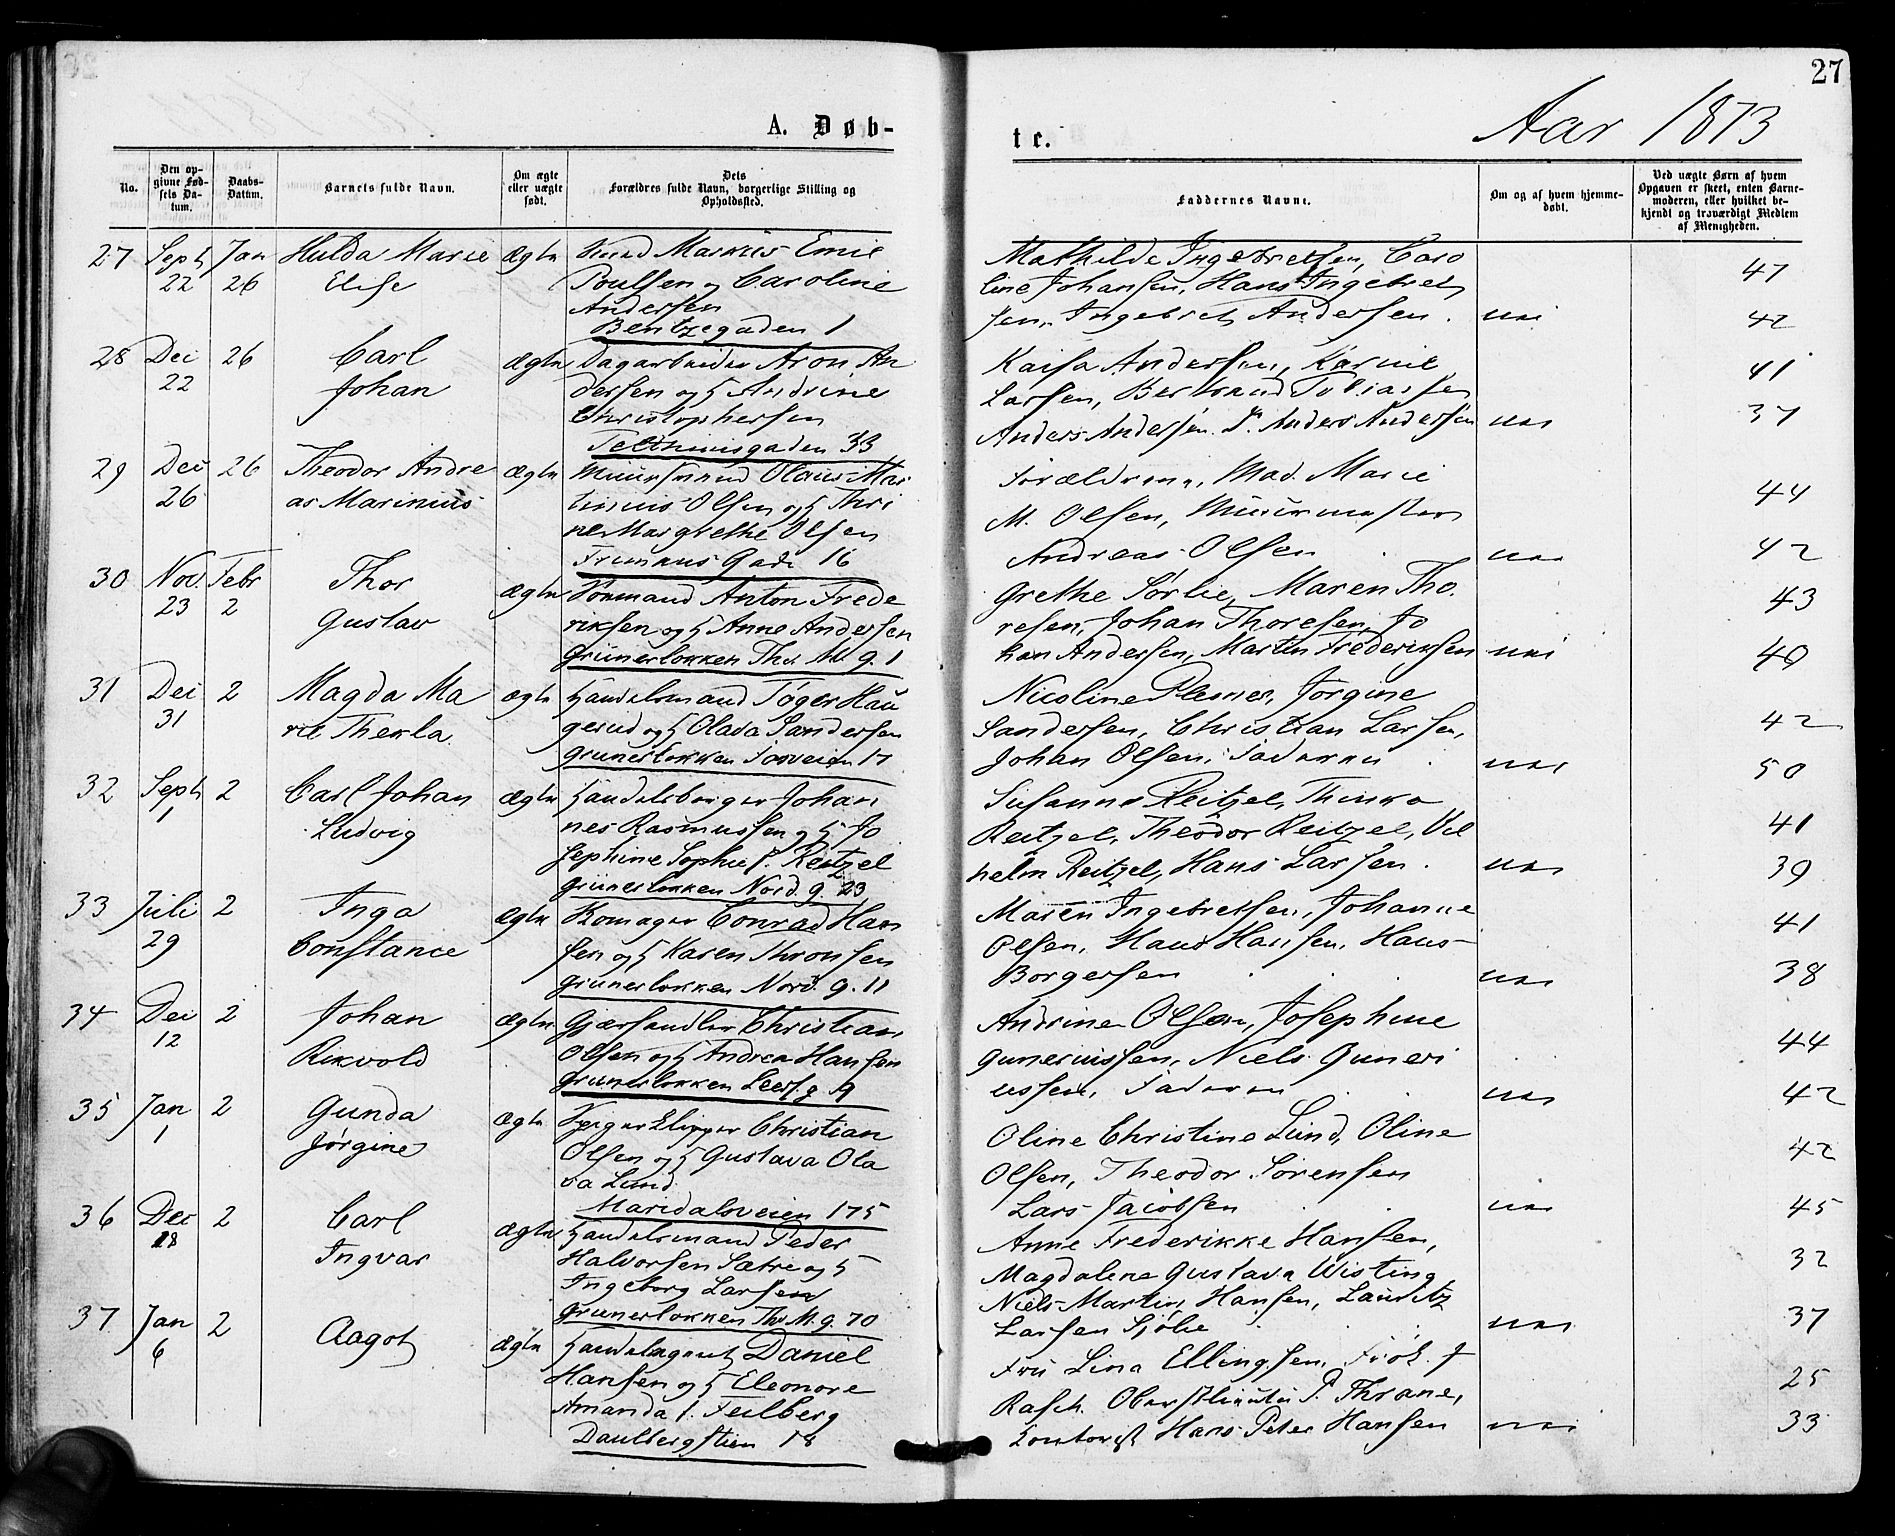 27
Aar 1873
A. Døb-
te.
No.
Den op-
givne Fød-
sels Da-
tum.
Daabs-
Datum.
Barnets fulde Navn.
Om ægte
eller uægte
født.
Dets
Forældres fulde Navn, borgerlige Stilling og
Opholdssted.
Faddernes Navne.
Om og af hvem hjemme-
døbt.
Ved uægte Børn af hvem
Opgaven er skeet, enten Barne-
moderen, eller hvilket be-
kjendt og troværdigt Medlem
af Menigheden.
27 Sept Jan Hulda Marie ægte Markus Emil
22 26 Elise Poulsen og Caroline
Andersen
Bentzegaden 1
Mathilde Ingebretsen, Caro
line Johansen, Hans Ingebret
sen, Ingebret Andersen. nei
47
42
28 Dec 26 Carl ægte Dagarbeider Aron An
22 Johan dersen og H Andrine
Christophersen
Telthusgaden 33
Kaisa Andersen, Karnil
Larsen, Bertrand Tobiassen
Anders Andersen. Anders Andersen nei
41
37
29 Dec 26 Theodor Andre ægte Muursvend Olaus Mar
26 as Marinius tinius Olsen og H Thri
ne Margrethe Olsen
Fremans Gade 16
Forældrene, Mad. Marie
M. Olsen, Muurmester
Andreas Olsen nei
44
42
30 Nov. Febr Thor ægte Formand Anton Frede
23 2 Gustav riksen og H Anne Andersen
Grünerløkken Th. M. g. 1
Grethe Sørlie, Maren Tho
resen, Johan Thoresen, Jo
han Andersen, Martin Frederiksen nei
43
40
31 Dec 2 Magda Ma ægte Handelsmand Tøger Hau
31 rie Thekla gerud og H Olava Sandersen
Grünerløkken 17
Nicoline Plesner, Jørgine
Sandersen, Christian Larsen,
Johan Olsen, Faderen nei
42
50
32 Sept 2 Carl Johan ægte Handelsborger Johan
1 Ludvig nes Rasmussen og H Jo
sephine Sophie f. Reitzel
Grünerløkken Nord. g. 23
Susanne Reitzel, Thinka
Reitzel, Theodor Reitzel, Vil
helm Reitzel, Hans Larsen. nei
41
39
33 Juli 2 Inga ægte Conrad Han
29 Constance sen og H Karen Thronsen
Grünerløkken Nord. g. 11
Maren Ingebretsen, Johanne
Olsen, Hans Hansen, Hans
Borgersen nei
41
38
34 Dec 2 Johan ægte Gjærhandler Christian
12 Rikvold Olsen og H Andrea Hansen
Grünerløkken g 9
Andrine Olsen, Josephine
Guneriussen, Niels Guneri
ussen, Faderen nei
44
42
35 Jan 2 Gunda ægte Christian
1 Jørgine Olsen og H Gustava Ola
va Lund
Maridalsveien 175
Oline Christine Lund, Oline
Olsen, Theodor Sørensen
Lars Jacobsen nei
42
45
36 Dec 2 Carl ægte Handelsmand Peder
18 Ingvar Halvorsen Sætre og H
Ingeborg Larsen
Grünerløkken Th. M. g. 70
Anne Frederikke Hansen,
Magdalene Gustava Wisting
Niels Martin Hansen, Lauritz
Larsen Sjølie nei
32
37
37 Jan 2 Aagot ægte Handelsagent Daniel
6 Hansen og H Eleonore
Amanda f. Feilberg
Daulbergstien 18
Fru Lina Ellingsen, Frøk. J
Rasch. P. Thrane,
Kontorist Hans Peter Hansen nei
25
33